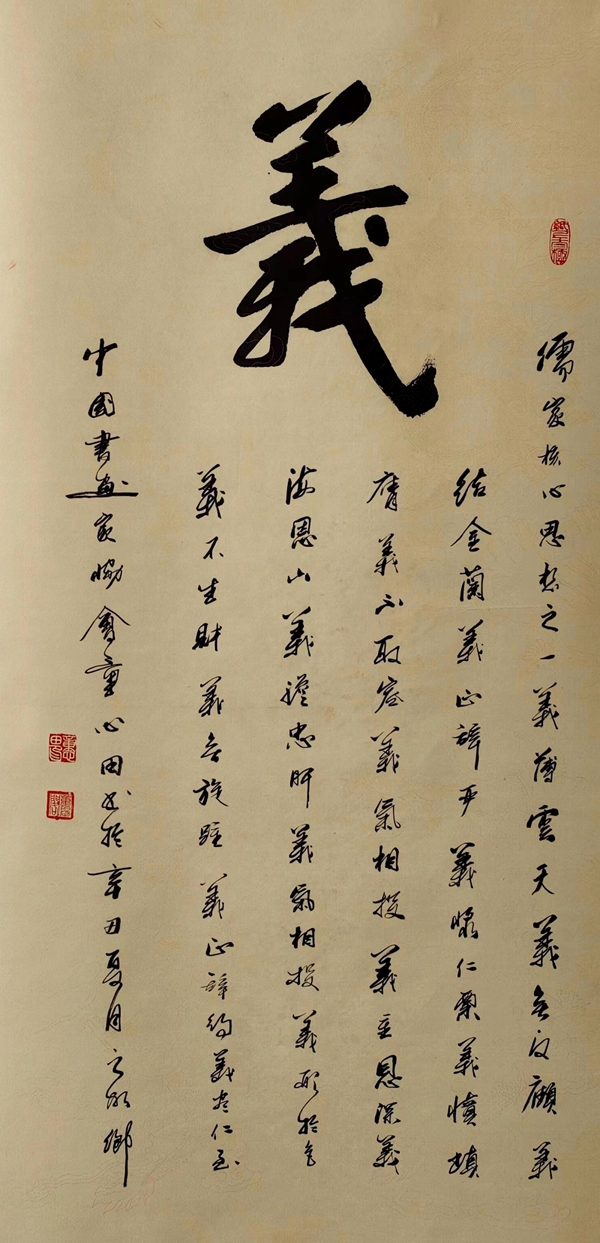 義
儒家核心思想之一義薄雲天義無反顧義
結金蘭義正辞严義漿仁粟義憤填
膺義不取容義氣相投義重恩深義
海恩山義膽忠肝義氣相投義形於色
義不生財義無旋踵義正辞約義盡仁至
中國書畫家協會童心田书於辛丑夏月故鄉